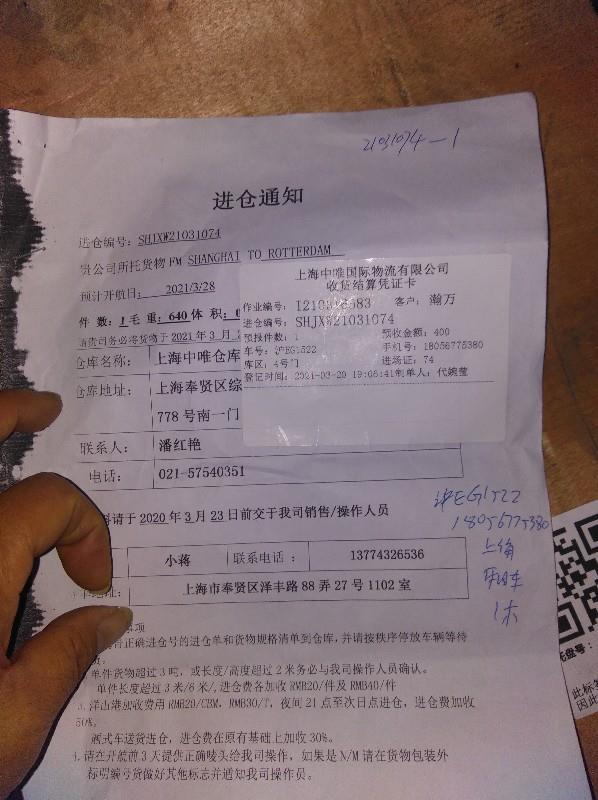 21031074-1
进仓通知
进仓编号: SHJXW21031074
贵公司所托货物 FM SHANGHAI TO ROTTERDAM
预计开航日: 2021/3/28
件 数: 1 毛 重: 640 体 积:
请贵司务必将货物于 2021 年 3 月
仓库名称: 上海中唯仓库
仓库地址: 上海奉贤区综
778 号南一门
联系人: 潘红艳
电话: 021-57540351
上海中唯国际物流有限公司
收货结算凭证卡
作业编号: 客户: 瀚万
进仓编号: SHJXW21031074
预报件数: 1 预收金额: 400
车号: 沪EG1522 手机号: 18056775380
库区: 4号门 进场证: 74
登记时间: 2021-03-20 19:05:41 制单人: 代婉莹
请于 2020 年 3 月 23 日前交于我司销售/操作人员
小蒋 联系电话: 13774326536
上海市奉贤区泽丰路 88 弄 27 号 1102 室
沪EG1522
18056775380
1
正确进仓号的进仓单和货物规格清单到仓库, 并请按秩序停放车辆等待
单件货物超过 3 吨, 或长度/高度超过 2 米务必与我司操作人员确认。
单件长度超过 3 米/6 米/, 进仓费各加收 RMB20/件及 RMB40/件
3. 洋山港加收费用 RMB20/CBM, RMB30/T, 夜间 21 点至次日点进仓, 进仓费加收
50%,
厢式车送货进仓, 进仓费在原有基础上加收 30%.
4. 请在开航前 3 天提供正确唛头给我司操作, 如果是 N/M 请在货物包装外
标明编号货做好其他标志并通知我司操作员。
托盘号:
此标签
因此